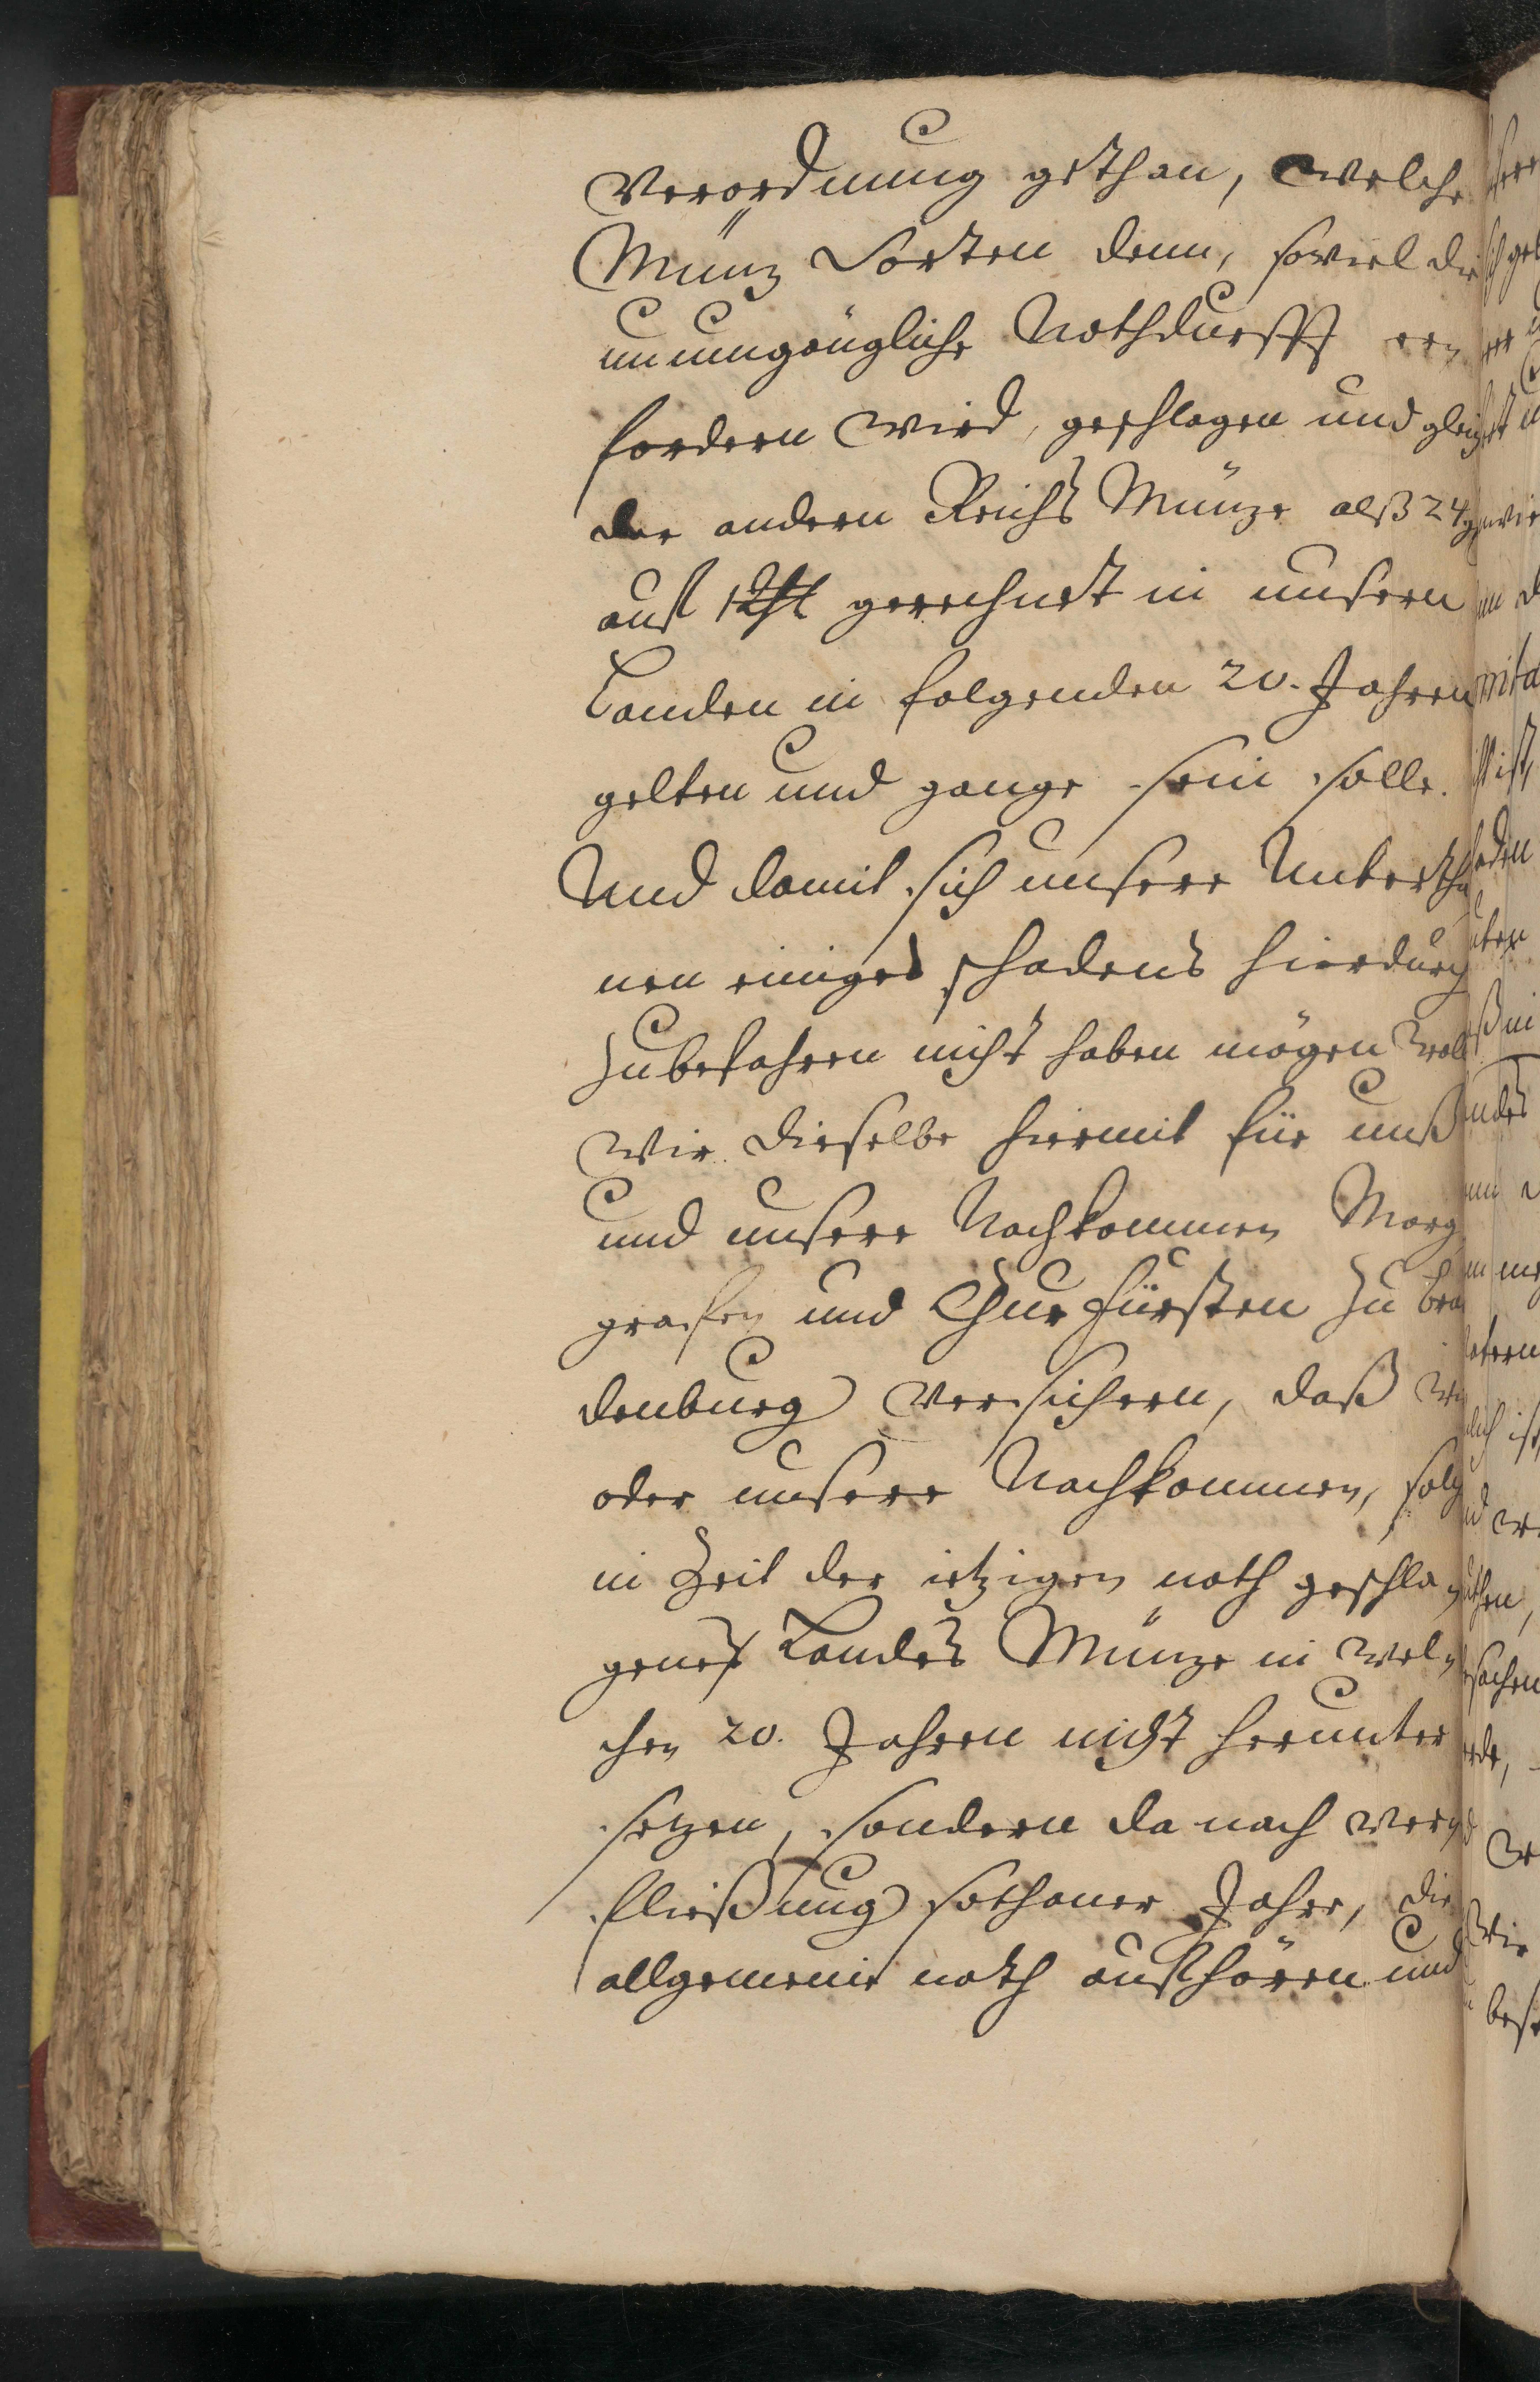 Verordnung gethan, welche
Müntz Sorten denn, soviel die
unumgängliche Nothdurfft er¬
fordern wird, geschlagen und gleich
der andern Reichs Müntze alß 24 g
auf 1 Thl gerechnet in unsern
Landen in folgenden 20. Jahren
gelten und gange sein solle.
Und damit sich unsere Untertha
nen einiges schadens hierdurch
zubefahren nicht haben mögen woll
wir dieselbe hiermit für unß
und unsere Nachkommen Marg
grafen und Churfürsten zu Bran
denburg versichern, daß wir
oder unsere Nachkommen, solch
in Zeit der ietzigen noth geschla¬
genes Landes Müntze in wel¬
chen 20. Jahren nicht herunter
setzen, sondern da nach ver¬
fließung sothaner Jahre, die
allgemeine noth aufhören und